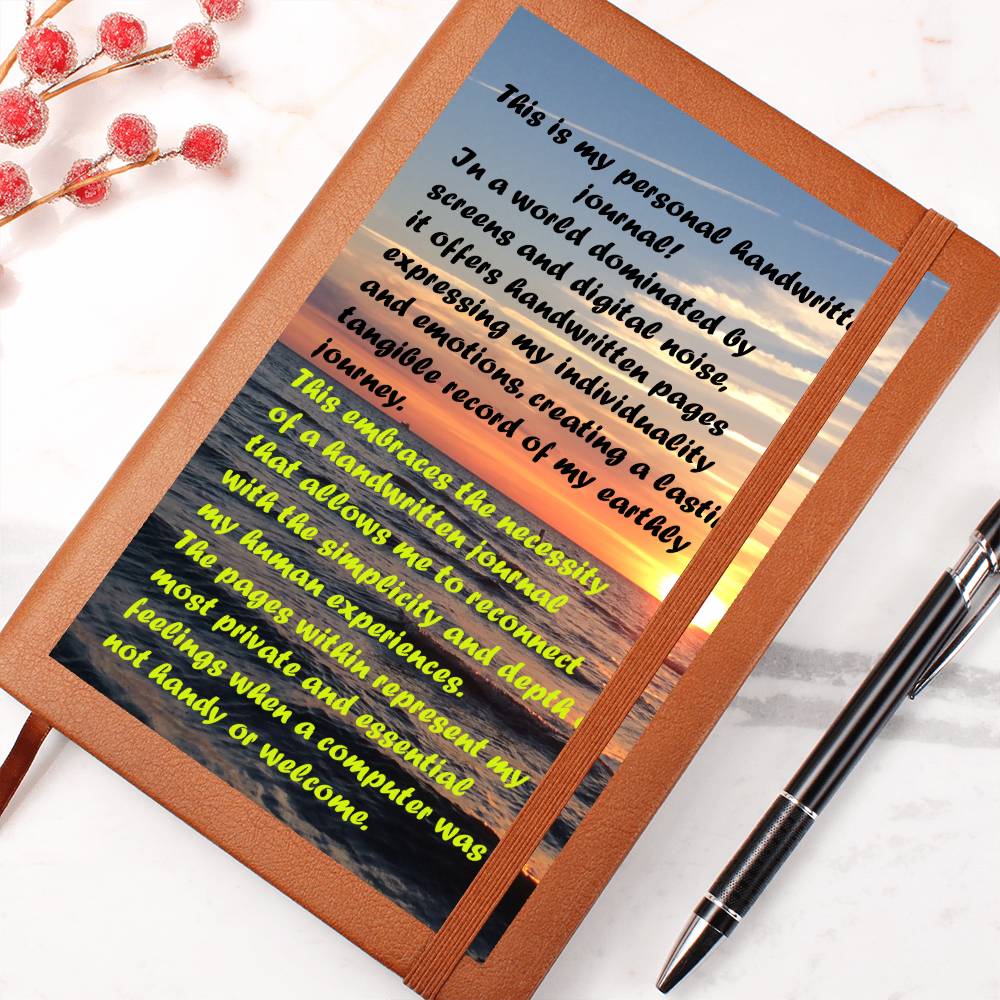 This is my personal handwritte
journal!
In a world dominated by
screens and digital noise,
it offers handwritten pages
expressing my individuality
and emotions, creating a lastin
tangible record of my earthly
journey.
This embraces the necessity
of a handwritten journal
that allows me to reconnect
with the simplicity and depth
my human experiences.
The pages within represent my
most private and essential
feelings when a computer was
not handy or welcome.